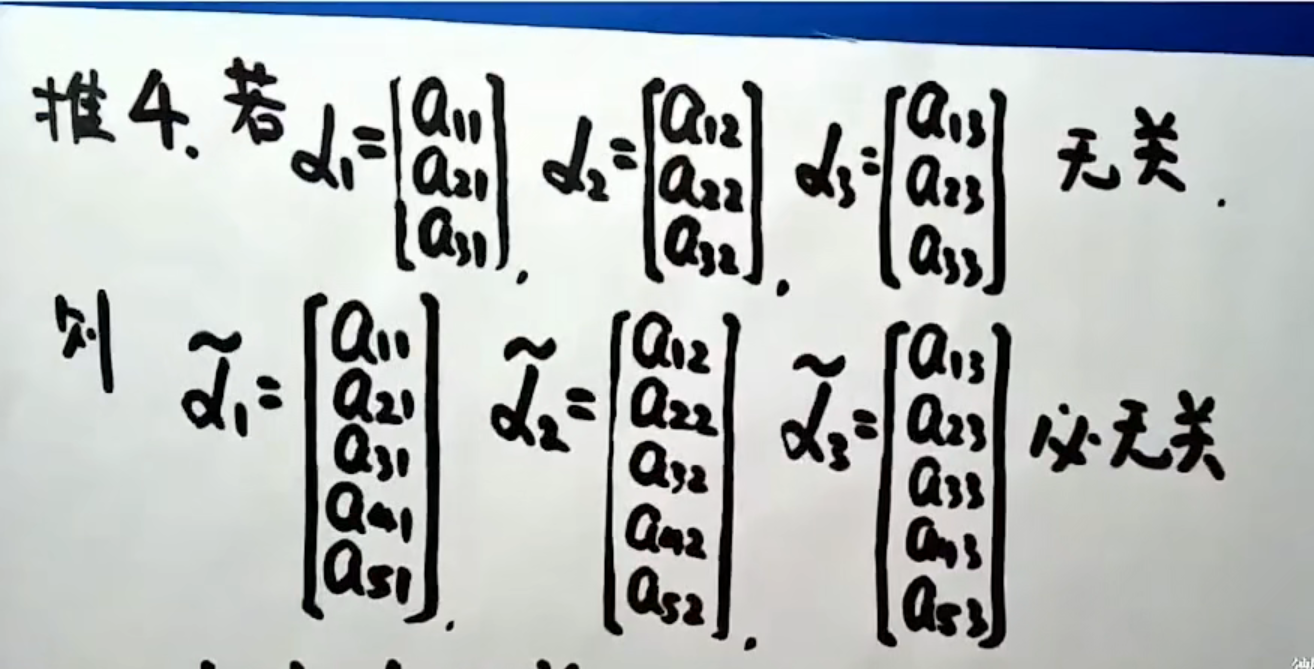 推4. 若 α₁=[a₁₁ a₂₁ a₃₁], α₂=[a₁₂ a₂₂ a₃₂], α₃=[a₁₃ a₂₃ a₃₃] 无关.
则 α̃₁=[a₁₁ a₂₁ a₃₁ a₄₁ a₅₁], α̃₂=[a₁₂ a₂₂ a₃₂ a₄₂ a₅₂], α̃₃=[a₁₃ a₂₃ a₃₃ a₄₃ a₅₃] 必无关